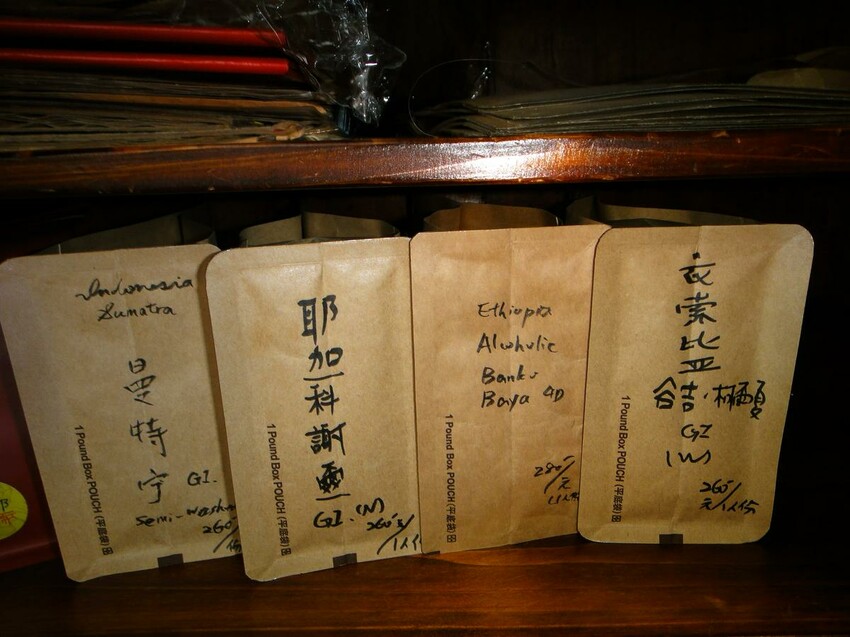 Indonesia
Sumatra
曼特宁
G1.
Semi-washe
260
1 Pound Box POUCH (平底袋)
耶加
科
謝
G1.(W)
260元/
1 Pound Box POUCH (平底袋)
Ethiopia
Alcoholic
Banko
Baya
280/
元
1 Pound Box POUCH (平底袋)
衣索比亞
谷吉.
G1
(W)
260/
元/1人份
1 Pound Box POUCH (平底袋)